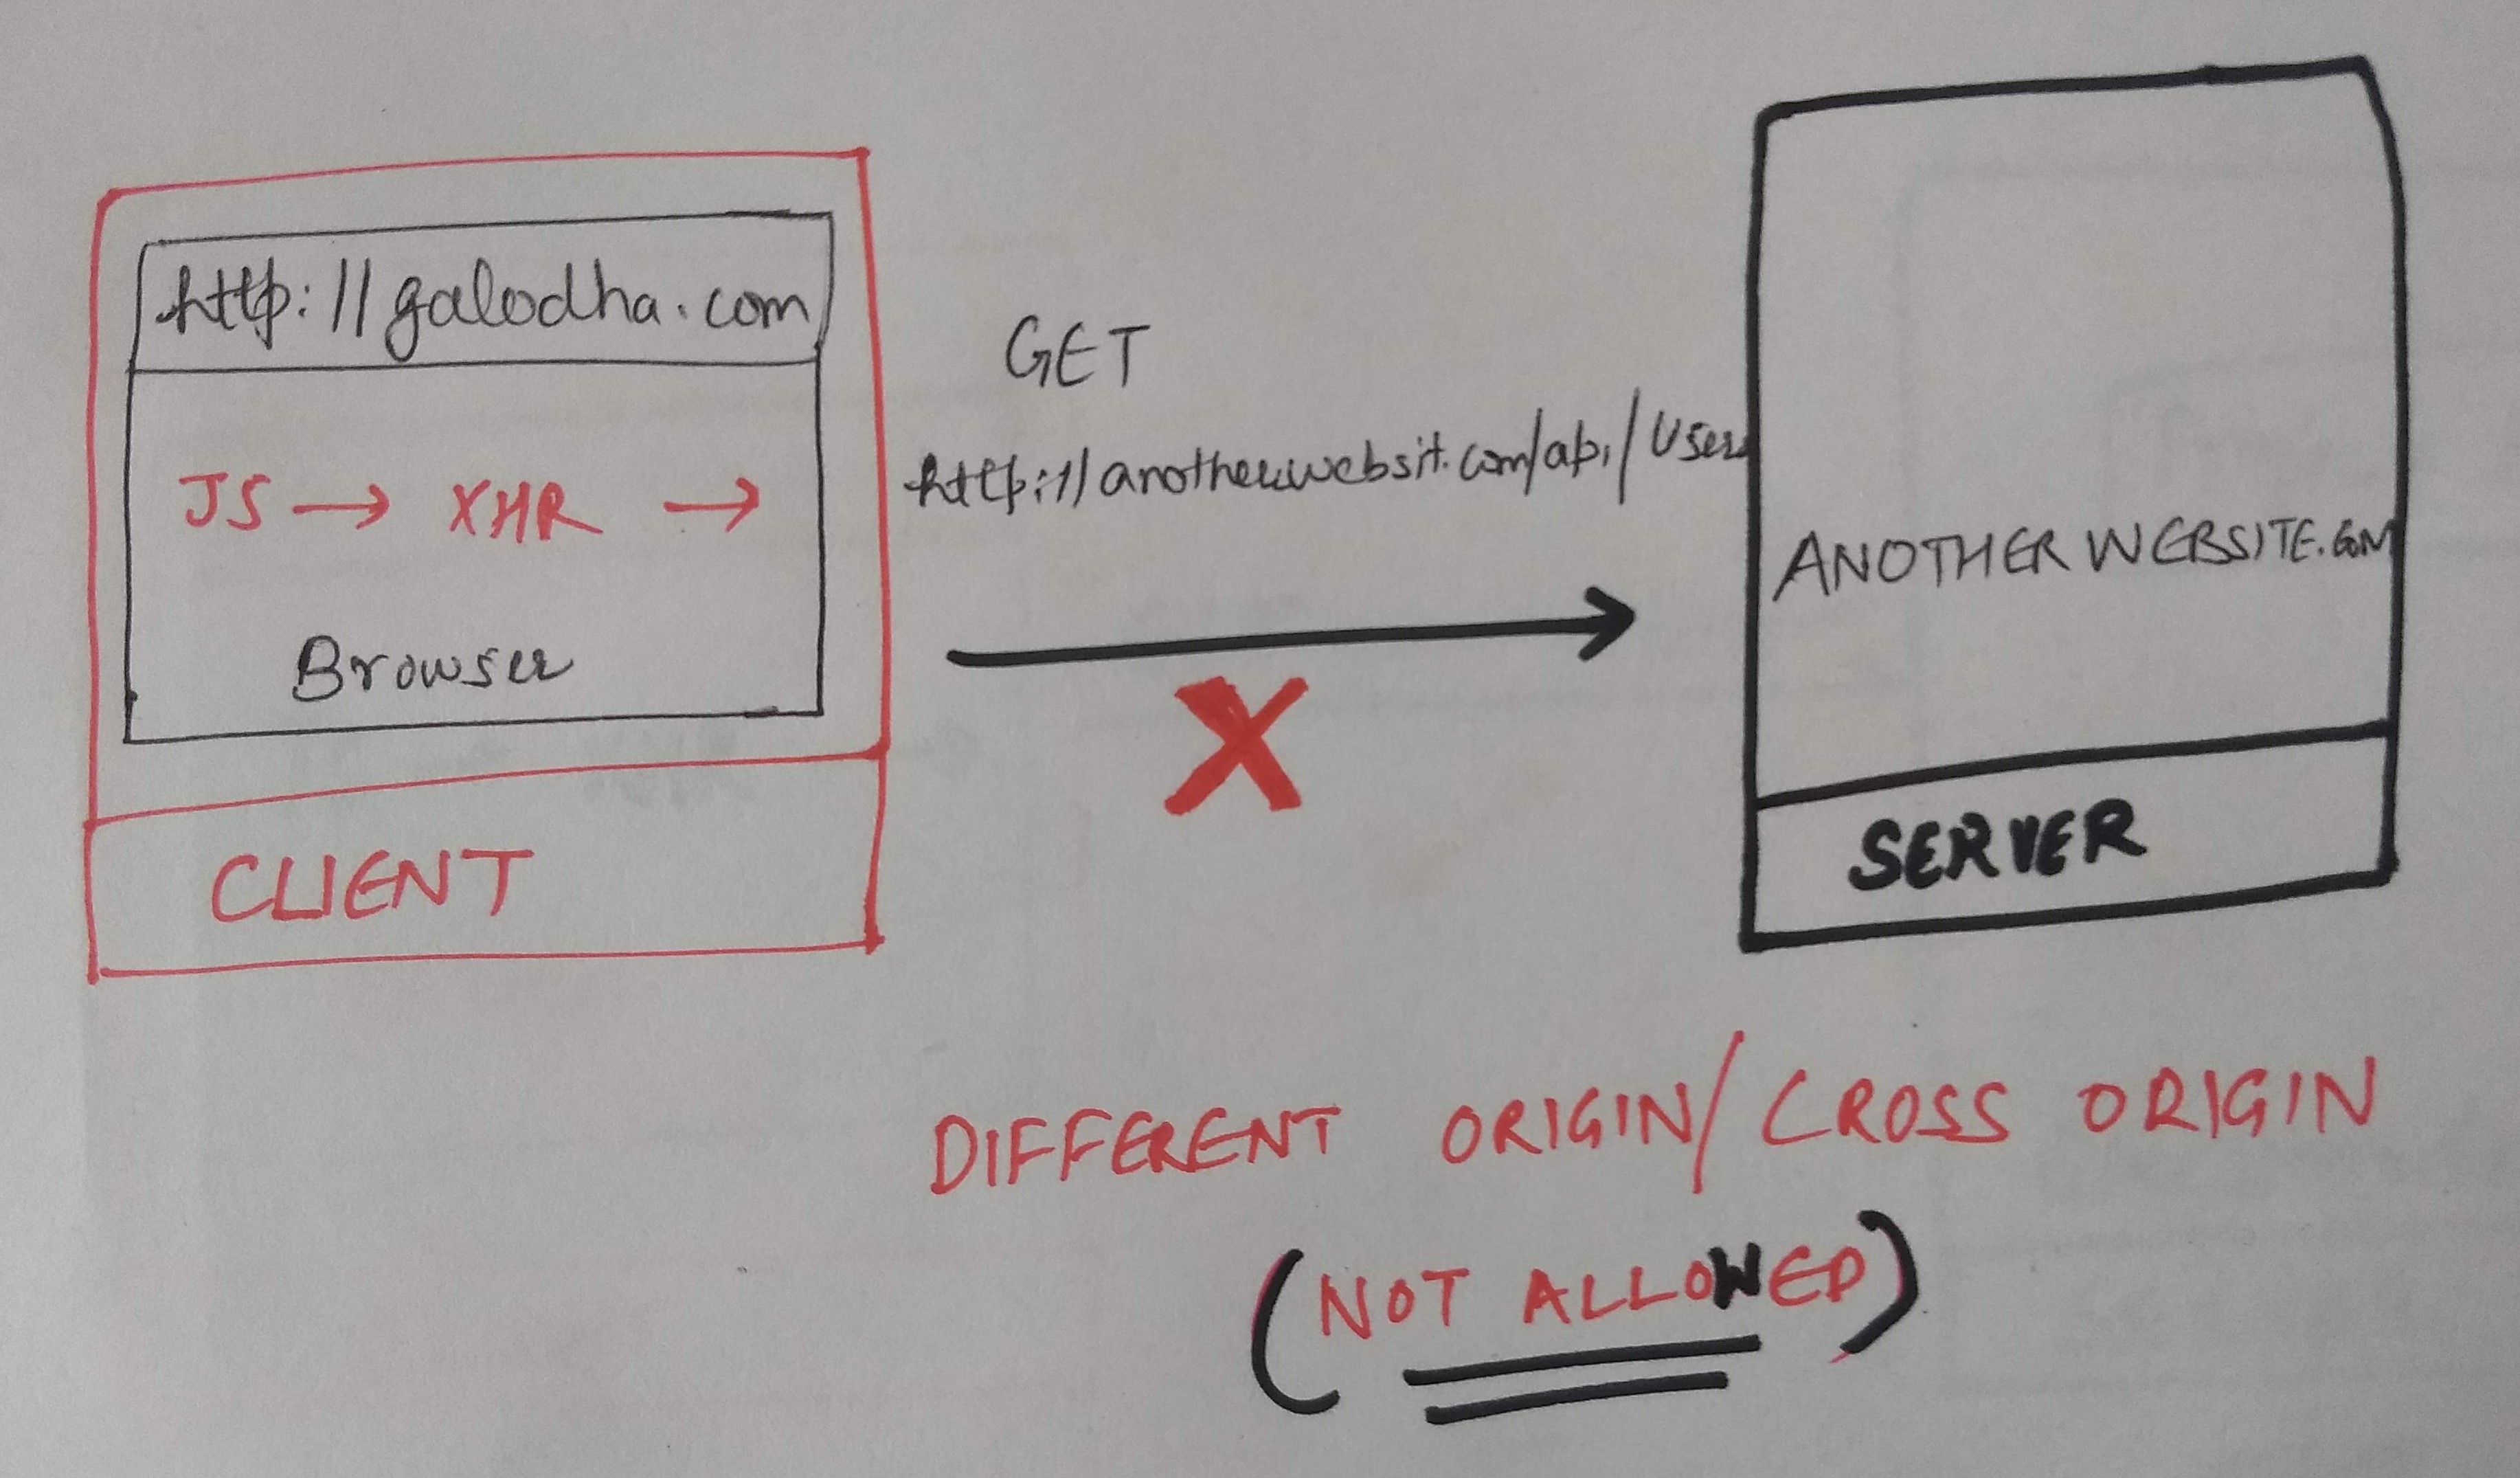 http://galodha.com
JS → XHR →
Browser
CLIENT
GET
http://anotherwebsit.com/api/User
ANOTHER WEBSITE.COM
SERVER
DIFFERENT ORIGIN/CROSS ORIGIN
(NOT ALLOWED)